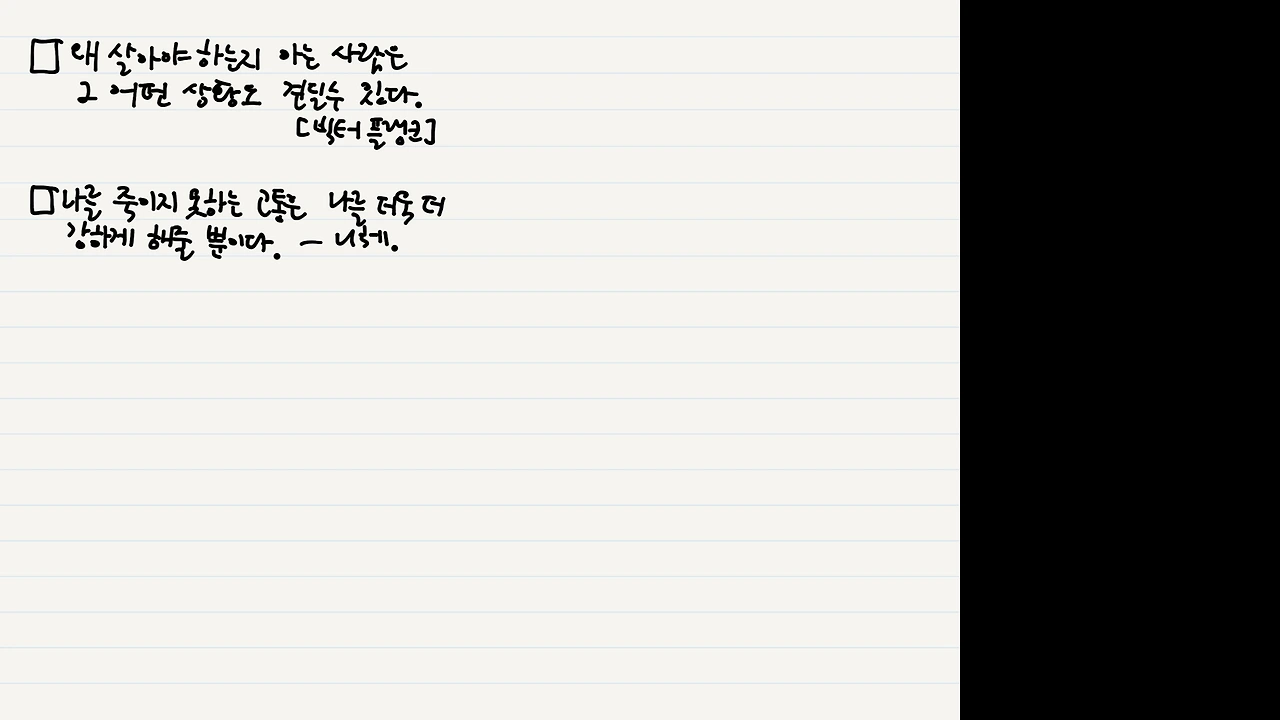 □ 왜 살아야 하는지 아는 사람은
그 어떤 상황도 견딜수 있다.
[빅터 플랭크]
□ 나를 죽이지 못하는 고통은 나를 더욱 더
강하게 해줄 뿐이다. - 니체.